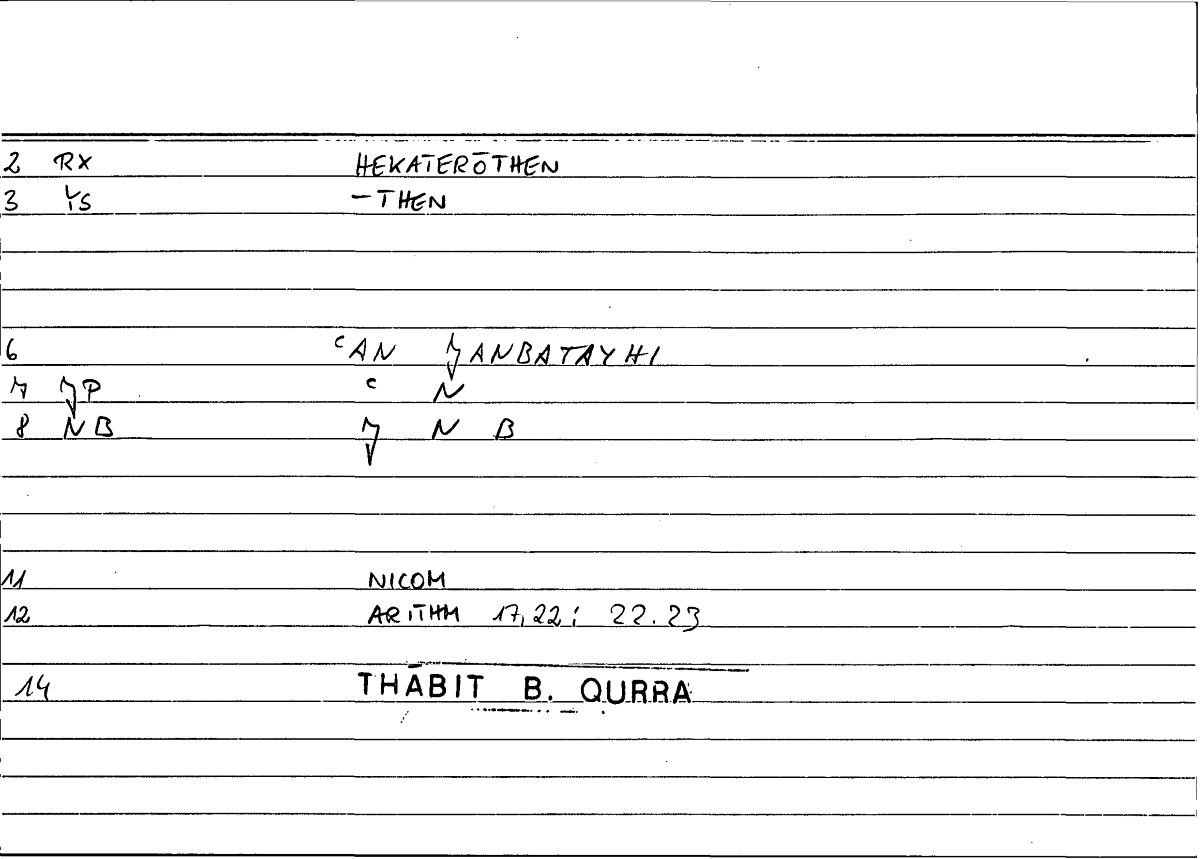 2 RX HEKATERŌTHEN
3 –THEN
6 ʿAN J̬ANBATAYHI
7 J̬P ʿ N
8 NB J̬ N B
11 NICOM
12 ARITHM 17,22; 22.23
14 THĀBIT B. QURRA